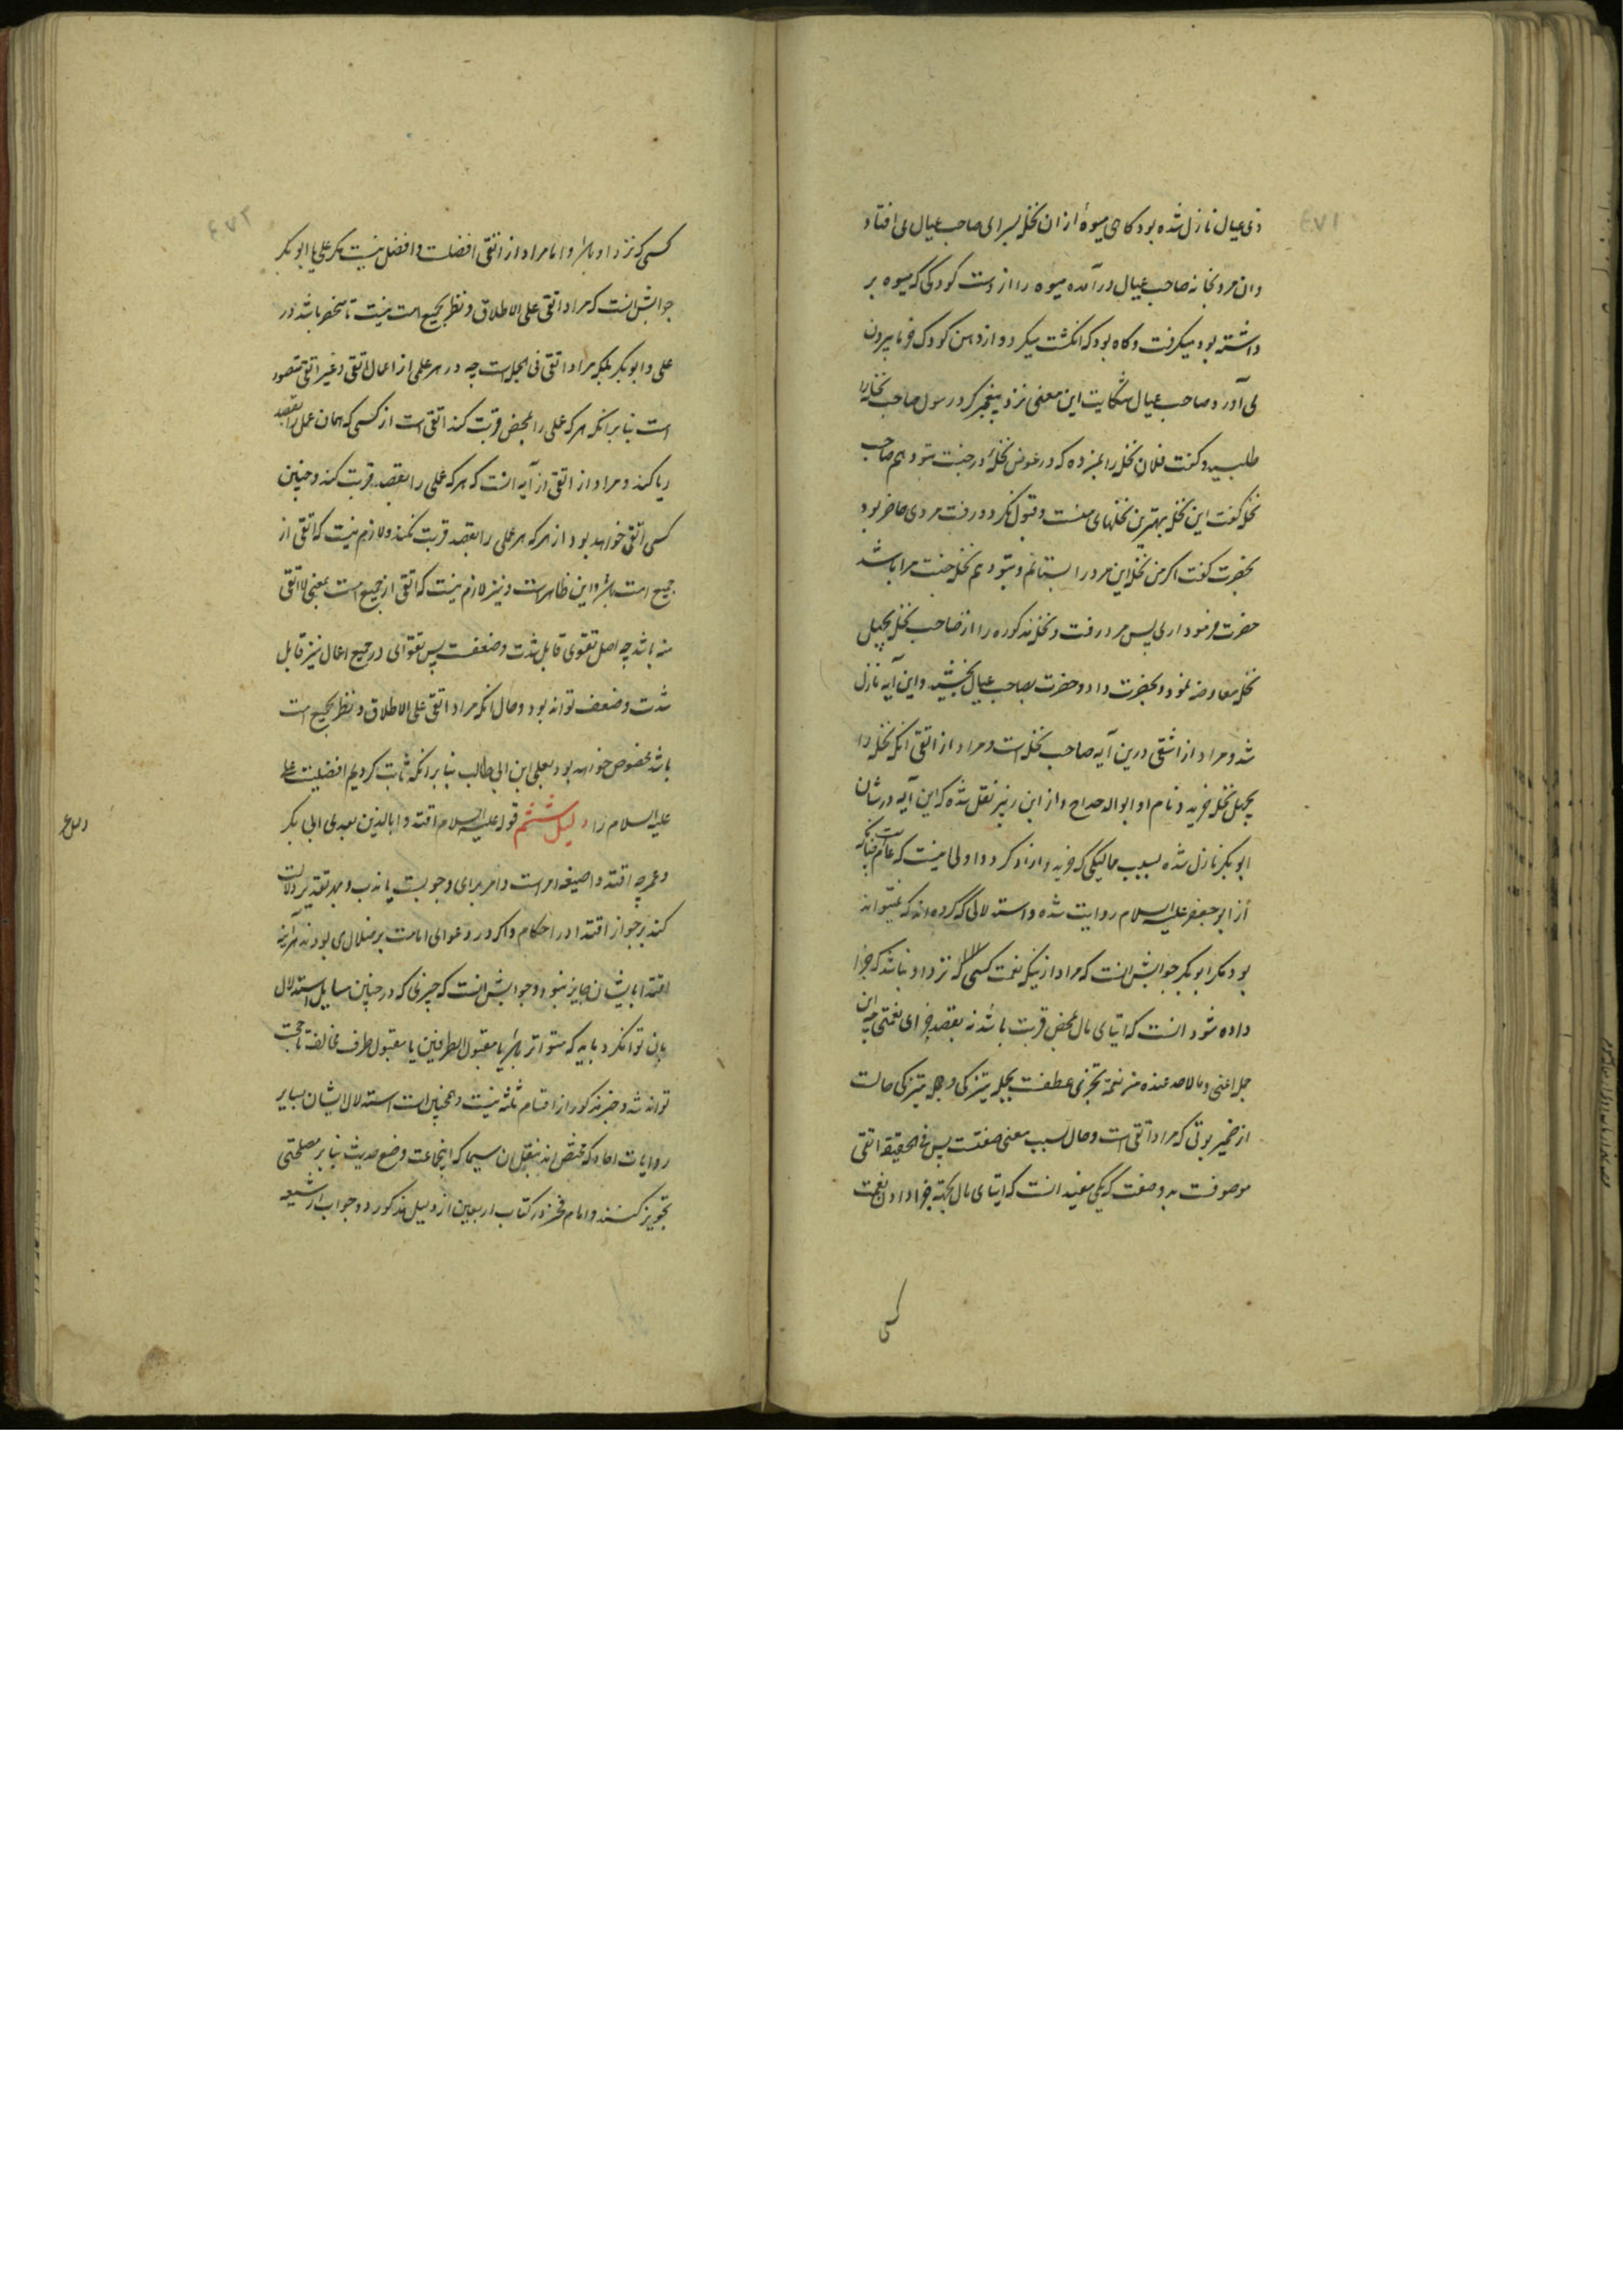 ٤٧١
ذی عیال نازل شده بود کاهی میوهٔ ازان نخل بسرای صاحب عیال می افتاد
وان مرد بخانه صاحب عیال درآمده میوه را از دست کودکی که میوه بر
داشته بود میکرفت و کاه بود که انکشت میکرد و از دهن کودک خرما بیرون
می آورد صاحب عیال شکایت این معنی نزد پیغمبر کرد رسول صاحب نخل را
طلبید و کفت فلان نخل را بمن ده که در عوض نخلهٔ در جنت بتو دهم صاحب
نخل کفت این نخل بهترین نخلهای منست و قبول نکرد و رفت مردی حاضر بود
بحضرت کفت اکر من نخل این مرد را بستانم و بتو دهم نخل جنت مرا باشد
حضرت فرمود اری پس مرد رفت و نخل مذکوره را از صاحب نخل بچهل
نخل معاوضه نمود و بحضرت داد و حضرت بصاحب عیال بخشید و این آیه نازل
شد و مراد از اشقی درین آیه صاحب نخل است و مراد از اتقی انکه نخل را
بچهل نخل خرید و نام او ابوالدحداح و از ابن زبیر نقل شده که این آیه در شان
ابوبکر نازل شده بسبب ممالیکی که خرید و ازاد کرد و اولی اینست که عام است چنانکه
از ابو جعفر علیه السلام روایت شده و استدلالی که کرده اند که نمیتواند
بود مکر ابوبکر جوابش انست که مراد از نیکه نعمت کسی که نزد او نباشد که جزا
داده شود انست که ایتای مال بمحض قربت باشد نه بقصد جزای نعمتی چه این
جمله اعنی و ما لاحد عنده من نعمة تجزی عطفست بجمله یتزکی و جمله یتزکی حالست
از ضمیر یوتی که مراد اتقی است و حال بسبب معنی صفتست پس فی الحقیقة اتقی
موصوفست بدو صفت که یکی مفید انست که ایتای مال بجهة جزا دادن نعمت
کسی
٤٧٢
کسی که نزد او باشد و اما مراد از اتقی افضلست و افضل نیست مکر علی یا ابوبکر
جوابش انست که مراد اتقی علی الاطلاق و نظر بجمیع امت نیست تا منحصر باشد در
علی و ابوبکر بلکه مراد اتقی فی الجمله است چه در هر عملی از اعمال اتقی و غیر اتقی متصور
است بنا برانکه هر که عملی را بمحض قربت کند اتقی است از کسی که همان عمل را بقصد
ریا کند و مراد از اتقی در آیه انست که هر که عملی را بقصد قربت کند و چنین
کسی اتقی خواهد بود از هر که هر عملی را بقصد قربت نکند و لازم نیست که اتقی از
جمیع امت باشد و این ظاهر است و نیز لازم نیست که اتقی از جمیع امت بمعنی لا اتقی
منه باشد چه اصل تقوی قابل شدت و ضعفست پس تقوای در جمیع اعمال نیز قابل
شدت و ضعف تواند بود و حال انکه مراد اتقی علی الاطلاق و نظر بجمیع امت
باشد مخصوص خواهد بود بعلی ابن ابی طالب بنا برانکه ثابت کردیم افضلیت علی
علیه السلام را دلیل ششم قوله علیه السلام اقتدوا بالذین بعدی ابی بکر
و عمر چه اقتدوا صیغه امر است و امر برای وجوبست یا ندب و بهر تقدیر دلالت
کند بر جواز اقتدا در احکام و اکر در دعوای امامت بر ضلال می بودند هر آینه
اقتدا بایشان جایز نبود و جوابش انست که چیزی که در چنین مسایل استدلال
بان توانکرد باید که متواتر باشد یا مقبول الطرفین یا مقبول طرف مخالف تا حجت
تواند شد و خبر مذکور از اقسام ثلثه نیست و همچنین است استدلال ایشان بسایر
روایات احاد که مختص اند بنقل ان سیما که اینجماعت وضع حدیث بنا بر مصلحتی
تجویز کنند و امام فخر در کتاب اربعین از دلیل مذکور دو جواب از شیعه